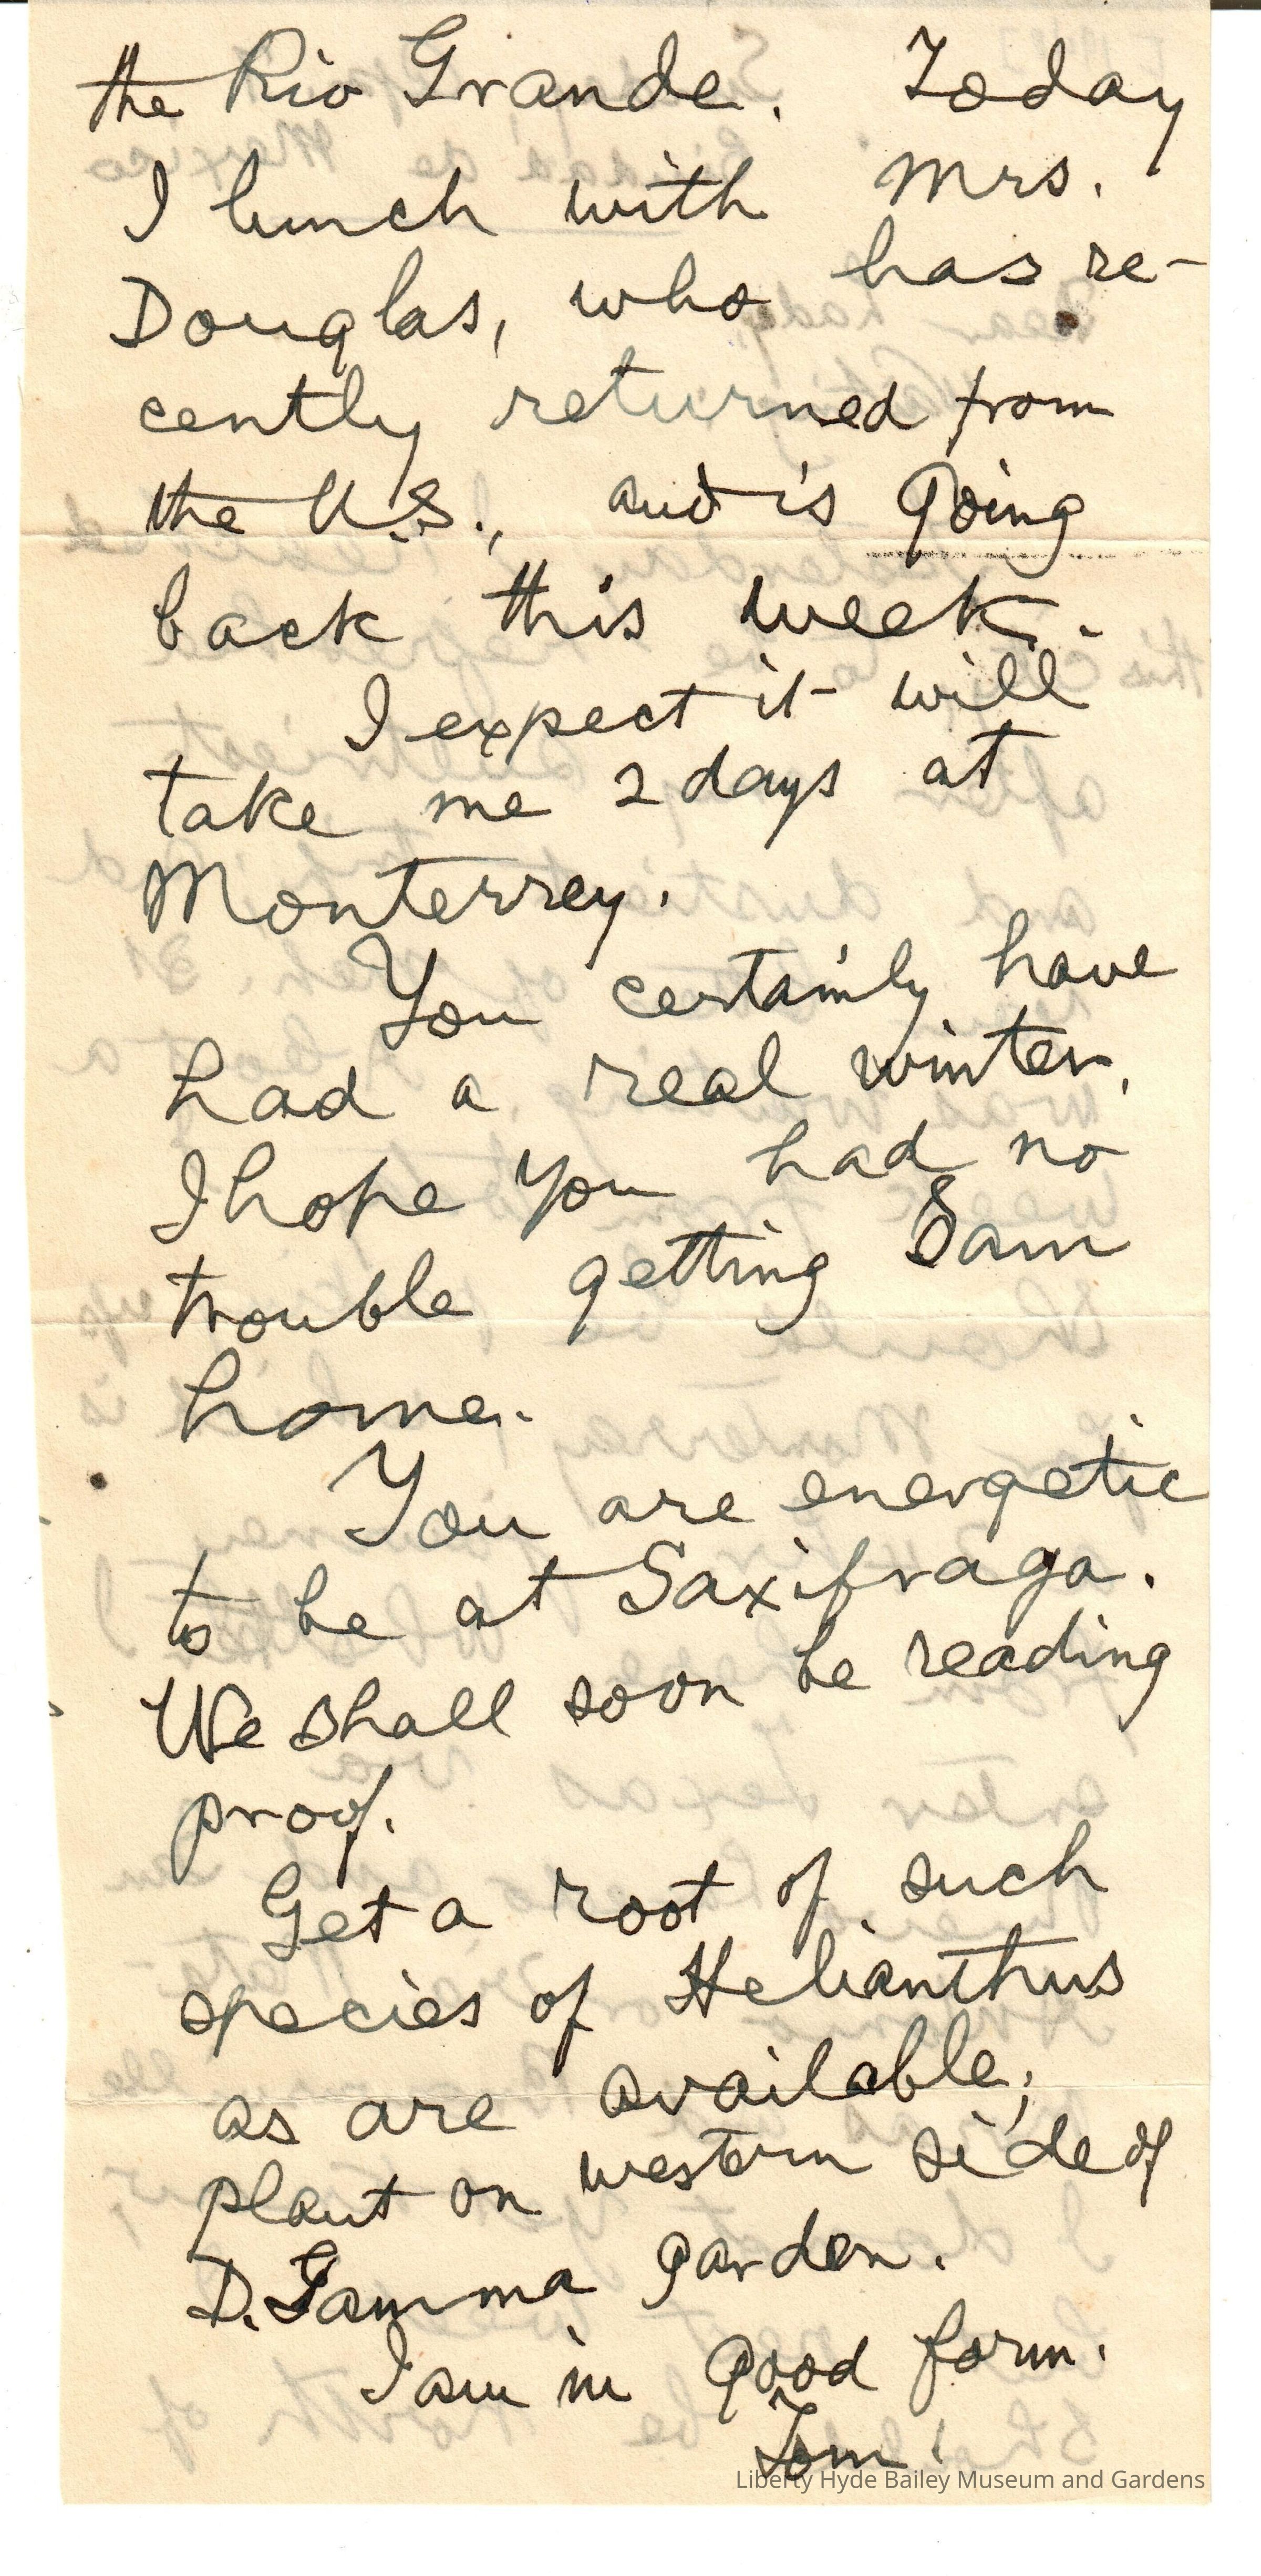 the Rio Grande. Today
I lunch with Mrs.
Douglas, who has re-
cently returned from
the U.S., and is going
back this week.
I expect it will
take me 2 days at
Monterrey.
You certainly have
had a real winter.
I hope you had no
trouble getting Sam
home.
You are energetic
to be at Saxifraga.
We shall soon be reading
proof.
Get a root of such
species of Helianthus
as are available;
plant on western side of
D. Gamma garden.
I am in good form.
Tom
Liberty Hyde Bailey Museum and Gardens